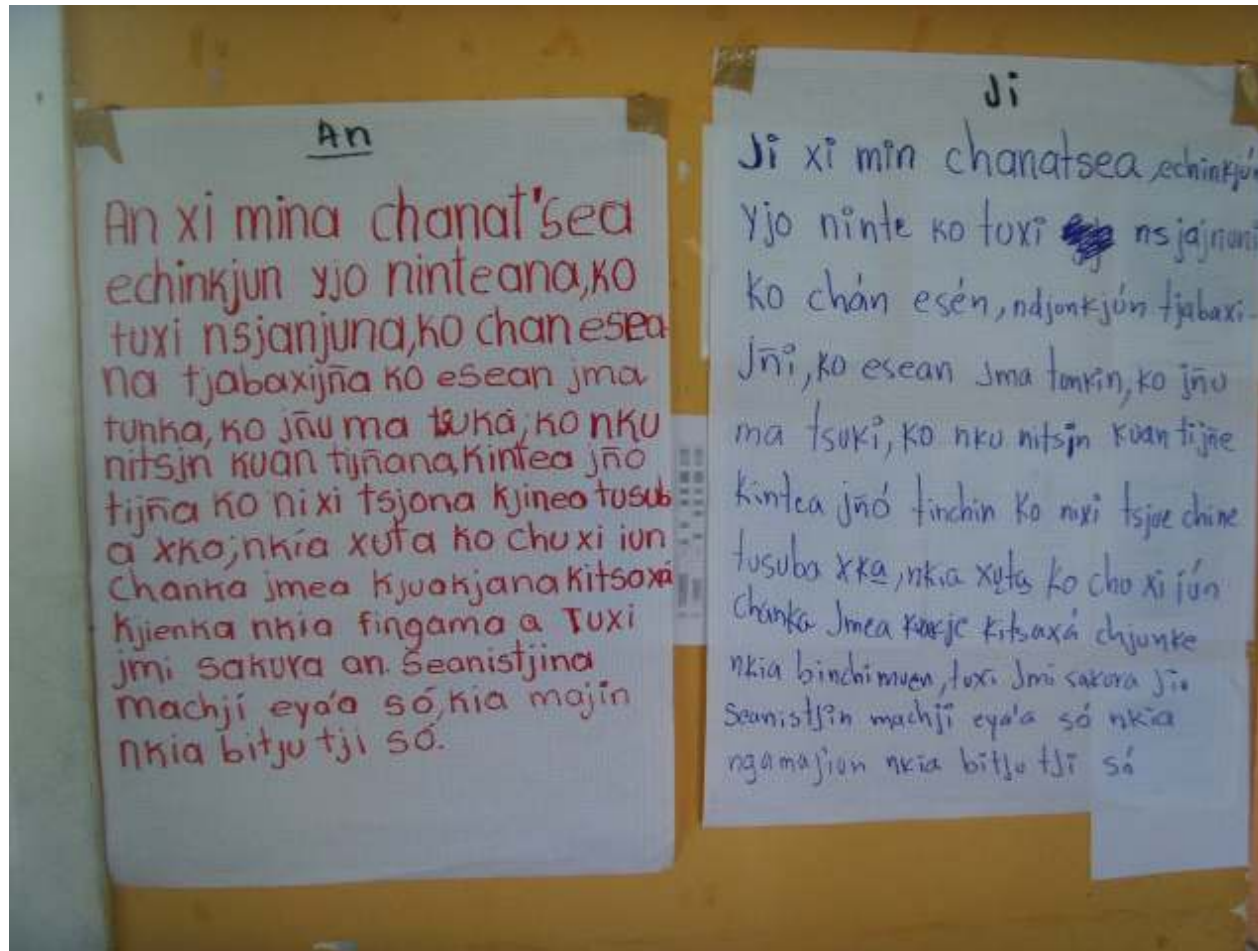 An
An xi mina chanat'sea
echinkjun yjo ninteana, ko
tuxi nsjanjuna, ko chan esea
na tjabaxijña ko esean jma
tunka, ko jñu ma tsuka, ko nku
nitsjn kuan tijñana, kintea jño
tijña ko ni xi tsjona kjinea tusub
a xko, nkía xuta ko chu xi iun
chanka jmea kjuakjana kitsoxá
kjienka nkia fingama a Tuxi
jmi sakura an. Seanistjina
machjí eya'a só, kia majin
nkia bitju tji só.
Ji
Ji xi min chanatsea, echinkjún
yjo ninte ko tuxi
ko chán esén, ndjonkjún tjabaxi-
jñi, ko esean jma tonkin, ko jñu
ma tsuki, ko nku nitsjn kuan tijñe
kintea jñó tinchin ko nixi tsjoe chine
tusuba xka, nkia xuta ko chu xi jún
chanka Jmea kitsaxá chjunke
nkia binchimuen, tuxi Jmi sakura Ji.
Seanistjin machjí eya'a só nkia
ngamajiun nkia bitju tji só